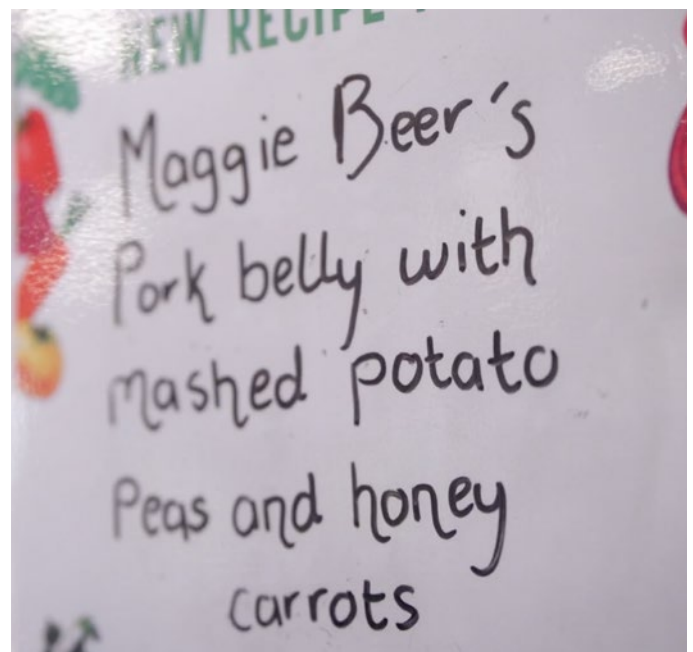 NEW RECIPE
Maggie Beer's
Pork belly with
mashed potato
Peas and honey
carrots